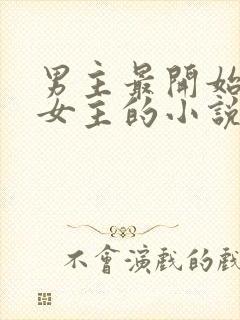 男主最開始
女主的小說
不會演戲的戲